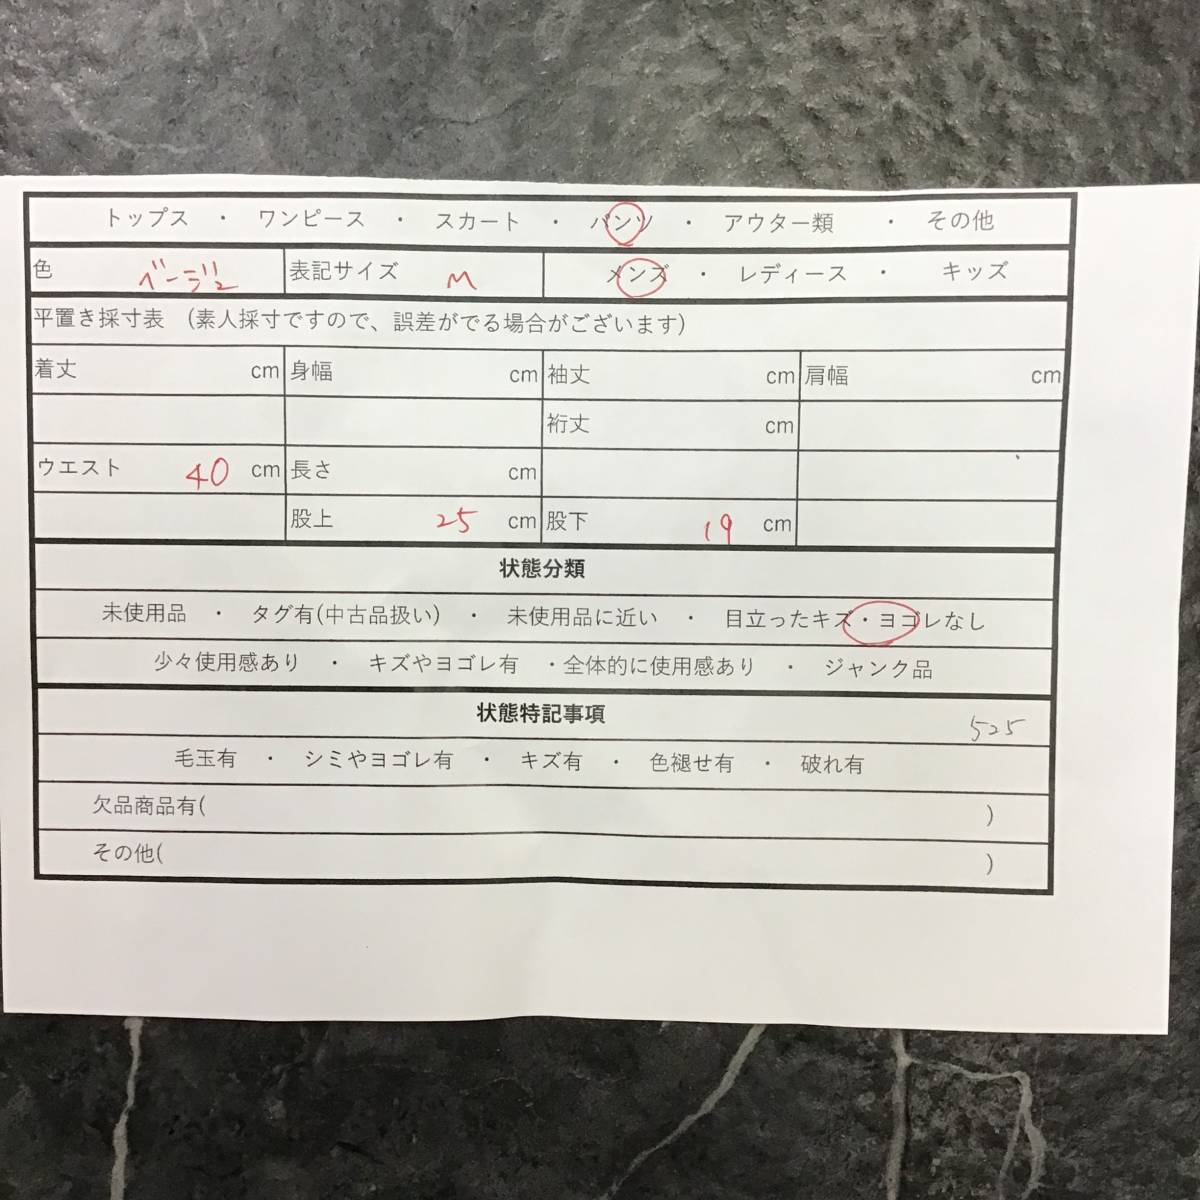 トップス ・ ワンピース ・ スカート ・ パンツ ・ アウター類 ・ その他
色 ベージュ 表記サイズ M メンズ ・ レディース ・ キッズ
平置き採寸表 (素人採寸ですので、誤差がでる場合がございます)
着丈 cm 身幅 cm 袖丈 cm 肩幅 cm
裄丈 cm
ウエスト 40 cm 長さ cm
股上 25 cm 股下 19 cm
状態分類
未使用品 ・ タグ有(中古品扱い) ・ 未使用品に近い ・ 目立ったキズ・ヨゴレなし
少々使用感あり ・ キズやヨゴレ有 ・全体的に使用感あり ・ ジャンク品
状態特記事項 525
毛玉有 ・ シミやヨゴレ有 ・ キズ有 ・ 色褪せ有 ・ 破れ有
欠品商品有( )
その他( )